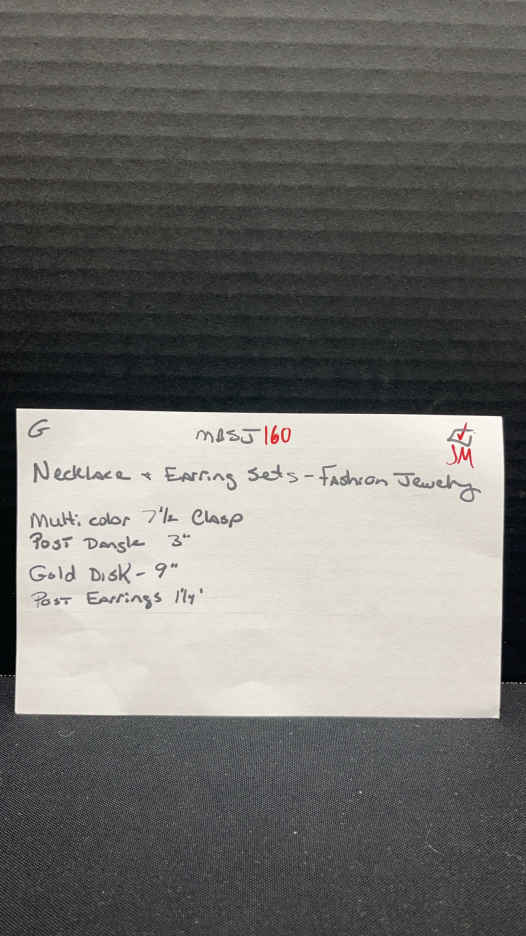 G MBSJ160
JM
Necklace + Earring Sets - Fashion Jewelry
Multi color 7 1/2 Clasp
Post Dangle 3"
Gold Disk - 9"
Post Earrings 1 1/4'